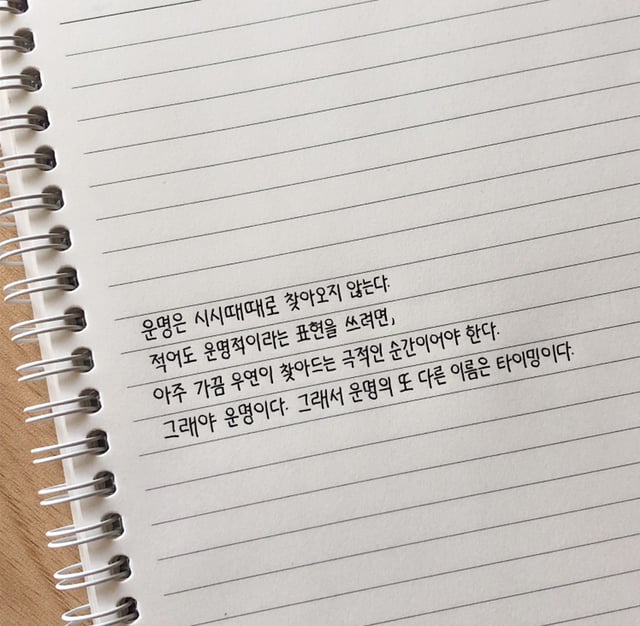 운명은 시시때때로 찾아오지 않는다.
적어도 운명적이라는 표현을 쓰려면,
아주 가끔 우연이 찾아드는 극적인 순간이어야 한다.
그래야 운명이다. 그래서 운명의 또 다른 이름은 타이밍이다.